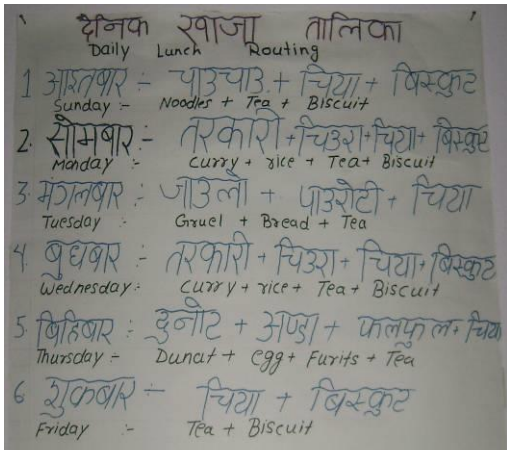 दैनिक खाजा तालिका
Daily Lunch Routing
1 आइतबार :- चाउचाउ + चिया + बिस्कुट
Sunday :- Noodles + Tea + Biscuit
2. सोमबार :- तरकारी + चिउरा + चिया + बिस्कुट
Monday :- Curry + rice + Tea + Biscuit
3. मंगलबार :- जाउलो + पाउरोटी + चिया
Tuesday :- Gruel + Bread + Tea
4. बुधबार :- तरकारी + चिउरा + चिया + बिस्कुट
Wednesday :- Curry + rice + Tea + Biscuit
5. बिहिबार :- डुनोट + अण्डा + फलफुल + चिया
Thursday :- Dunat + egg + Furits + Tea
6 शुक्रबार - चिया + बिस्कुट
Friday :- Tea + Biscuit